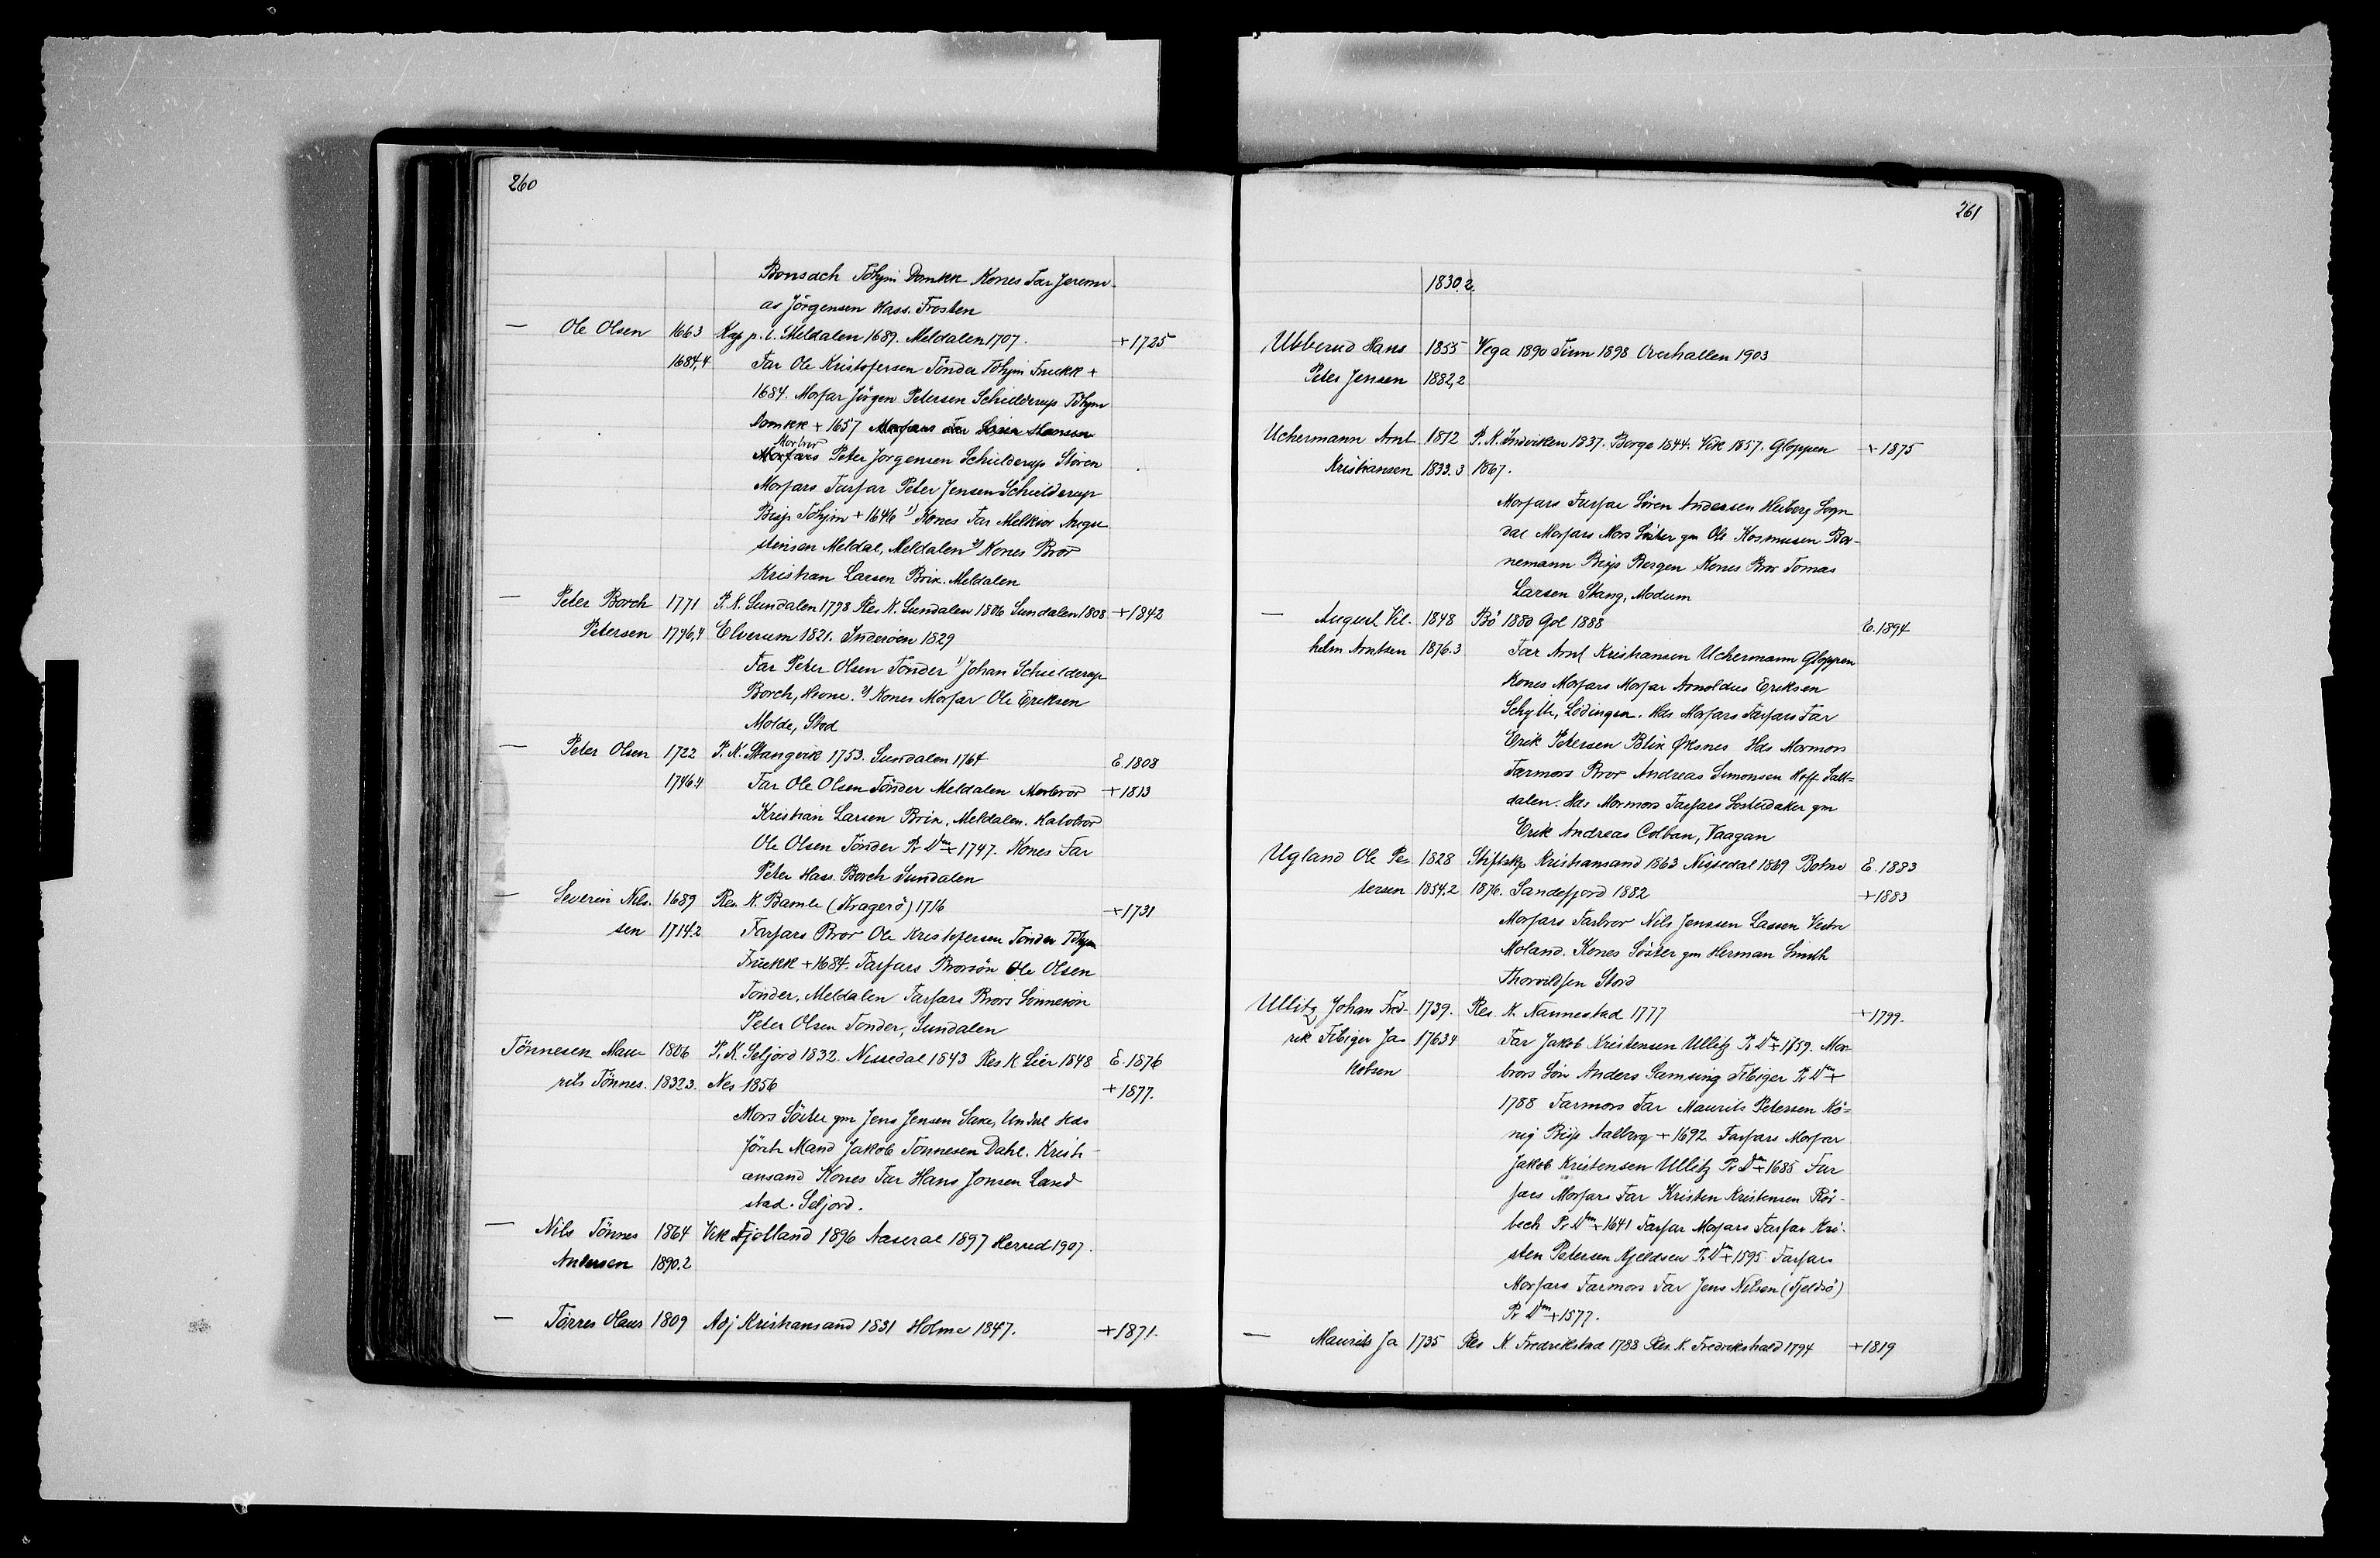 260
Bonsach Tóhjm Domkk Kones Far Jeremi-
as Jörgensen Hass. Frosten
— Ole Olsen 1663 Kap p. l. Meldalen 1689. Meldalen 1707. +1725
1684,4 Far Ole Kristofersen Tönder Tóhjm Fruekk +
1684. Morfar Jörgen Petersen Schielderup Tóhjm
Domkk + 1657 Morfars Far Hansen
Morbror
Morfars Peter Jörgensen Schielderup Stören
Morfars Farfar Peter Jensen Schielderup
Bisp Tóhjm + 1646 1) Kones Far Melkior Augu
stinsen Meldal, Meldalen 2) Kones Bror
Kristian Larsen Brix. Meldalen
— Peter Borch 1771 P. K. Sundalen 1798 Res K. Sundalen 1806 Sundalen 1808 +1842
Petersen 1796,4 Elverum 1821. Inderöen 1829
Far Peter Olsen Tönder 1) Johan Schielderup
Borch, Hevne. 2) Kones Morfar Ole Eriksen
Molde, Stod
— Peter Olsen 1722 P. K. Stangvik 1753. Sundalen 1764 E. 1808
1746.4 Far Ole Olsen Tönder Meldalen Morbror +1813
Kristian Larsen Brix, Meldalen. Halvbror
Ole Olsen Tönder Pr Dm + 1747. Kones Far
Peter Hass. Borch Sundalen
— Severin Nils- 1689 Res. K. Bamle (Kragerö) 1716 +1731
sen 1714.2 Farfars Bror Ole Kristofersen Tönder Tóhjm
Fruekk +1684. Farfars Brorsön Ole Olsen
Tönder, Meldalen Farfars Brors Sönnesön
Peter Olsen Tönder, Sundalen
Tönnesen Mau- 1806 P. K. Seljord 1832. Nissedal 1843 Res K Lier 1848 E. 1876
rits Tönnes. 1832.3. Nes 1856 +1877.
Mors Söster gm Jens Jensen Saxe, Undal Hds
förste Mand Jakob Tönnesen Dahl. Kristi-
ansand Kones Far Hans Jonsen Land
stad. Seljord.
— Nils Tönnes 1864 Vik Fjotland 1896 Aaseral 1897 Herred 1907.
Andersen 1890.2
— Törres Olaus 1809 Adj Kristiansand 1831 Holme 1847. +1871.
261
1830.2.
Ubberud Hans 1855 Vega 1890 Tinn 1898 Overhallen 1903
Peter Jensen 1882,2
Uchermann Arnt 1812 P. K. Indviken 1837. Borge 1844. Vik 1857. Gloppen +1875
Kristiansen 1833.3 1867.
Morfars Farfar Sören Andersen Heiberg Sogn
dal Morfars Mors Söster gm Ole Rasmusen Bor-
nemann Bisp Bergen Kones Bror Tomas
Larsen Stang, Modum
— August Vil- 1848 Bö 1880 Gol 1888 E. 1894
helm Arntsen 1876.3 Far Arnt Kristiansen Uchermann Gloppen
Kones Morfars Morfar Arnoldus Eriksen
Schytte, Lödingen. Hds Morfars Farfars Far
Erik Petersen Blix Øksnes Hds Mormors
Farmors Bror Andreas Simonsen Hoff Salt=
dalen. Hds Mormors Farfars Sösterdater gm
Erik Andreas Colban, Vaagan
Ugland Ole Pe- 1828 Stiftskp Kristiansand 1863 Nissedal 1869 Botne E. 1883
tersen 1854.2 1876. Sandefjord 1882 +1883
Morfars Farbror Nils Jenssen Lassen Vestre
Moland. Kones Söster gm Herman Smith
Thorvildsen Stord
Ullitz Johan Fred- 1739. Res. K. Nannestad 1777 +1799.
rik Fibiger Ja- 1763.4 Far Jakob Kristensen Ullitz Pr Dm + 1759. Mor
kobsen brors Sön Anders Samsing Fibiger Pr Dm +
1788 Farmors Far Maurits Petersen Kö=
nig Bisp Aalborg + 1692. Farfars Morfar
Jakob Kristensen Ullitz Pr Dm + 1685 Far
fars Morfars Far Kristen Kristensen Rör-
bech Pr Dm + 1641 Farfar Morfars Farfar Kri-
sten Petersen Kjeldsen Pr Dm + 1595 Farfars
Morfars Farmors Far Jens Nilsen (Fjeldsö)
Pr Dm + 1577.
— Maurits Ja 1735 Res K. Fredrikstad 1788 Res. K. Fredrikshald 1794 +1819